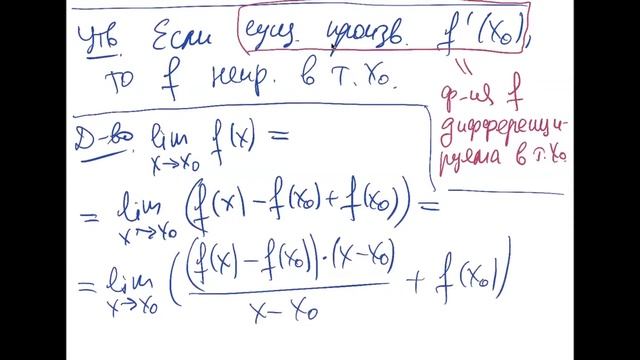 Утв. Если сущ. произв. f'(x₀),
то f непр. в т. x₀.
||
ф-ия f
дифференци-
руема в т. x₀
Д-во lim f(x) =
x→x₀
= lim (f(x) − f(x₀) + f(x₀)) =
x→x₀
= lim ( (f(x) − f(x₀)) · (x − x₀) / (x − x₀) + f(x₀) )
x→x₀